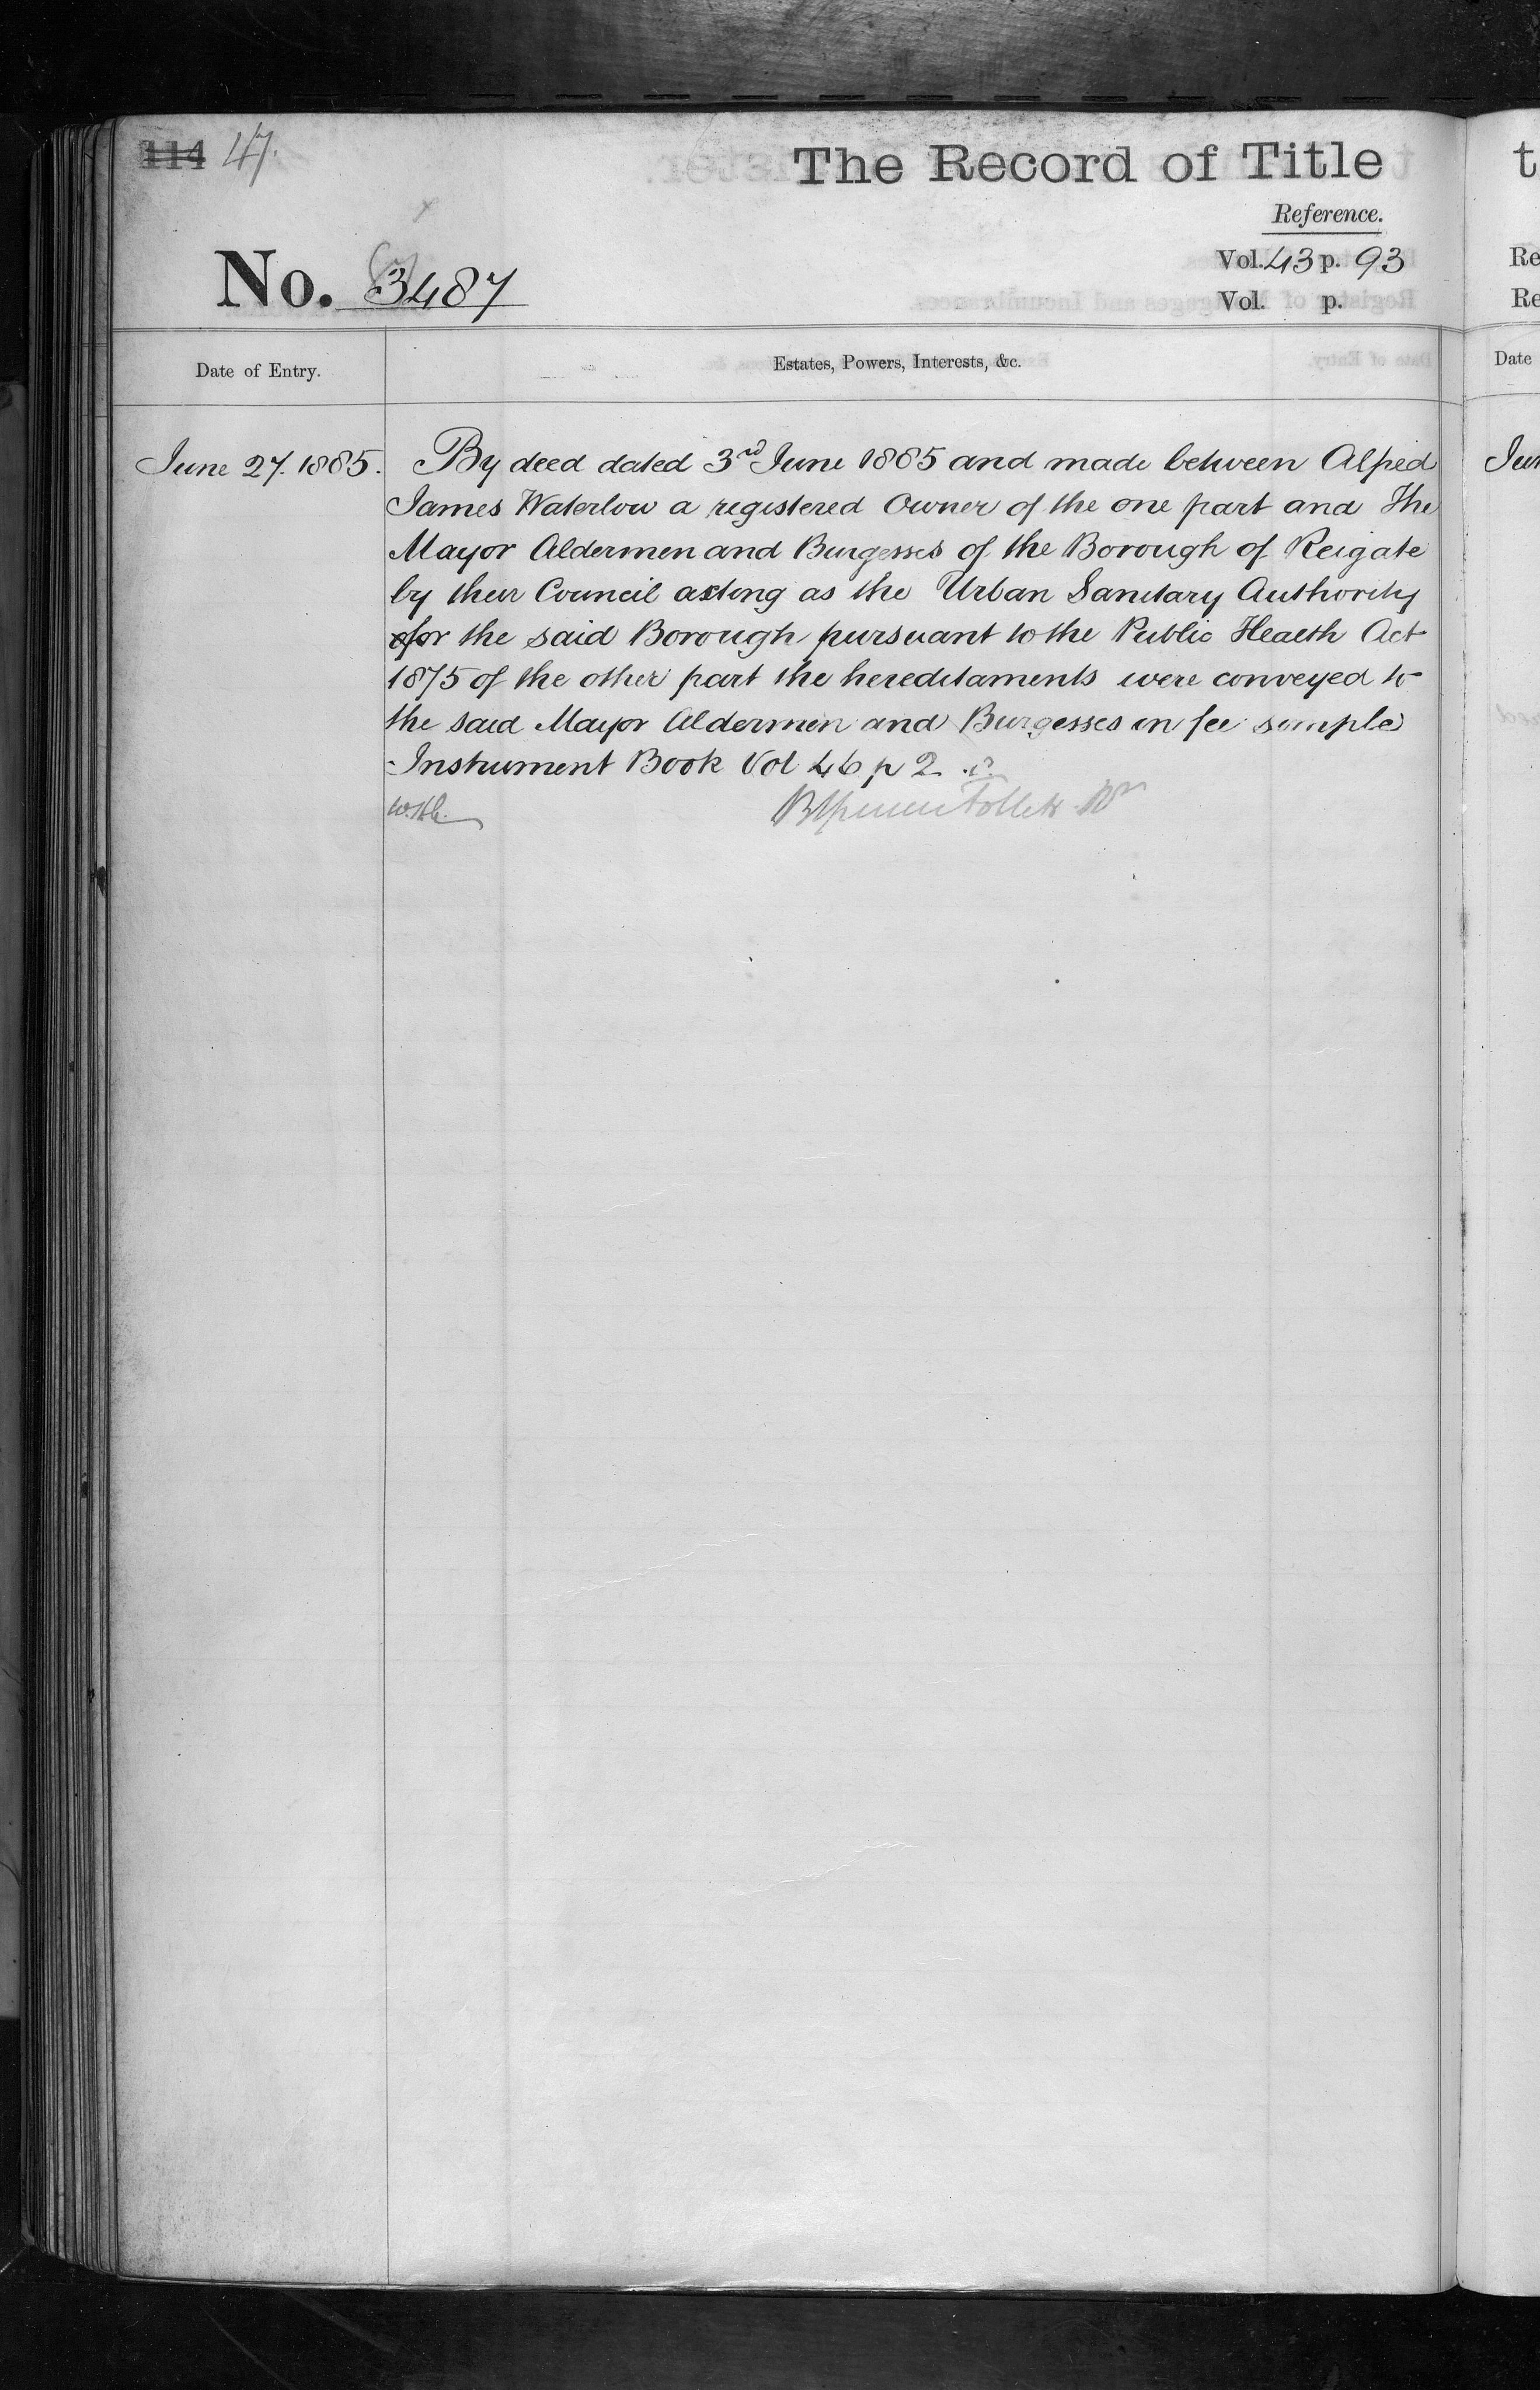 114 47.
The Record of Title
Reference.
Vol. 43 p. 93
No. 3487
Vol. p.
Date of Entry.
Estates, Powers, Interests, &c.
June 27. 1885.
By deed dated 3rd June 1885 and made between Alfred
James Waterlow a registered Owner of the one part and The
Mayor Aldermen and Burgesses of the Borough of Reigate
by their Council acting as the Urban Sanitary Authority
for the said Borough pursuant to the Public Health Act
1875 of the other part the hereditaments were conveyed to
the said Mayor Aldermen and Burgesses in fee simple
Instrument Book Vol 46 p 2
Follett
t
Re
Re
Date
Jun